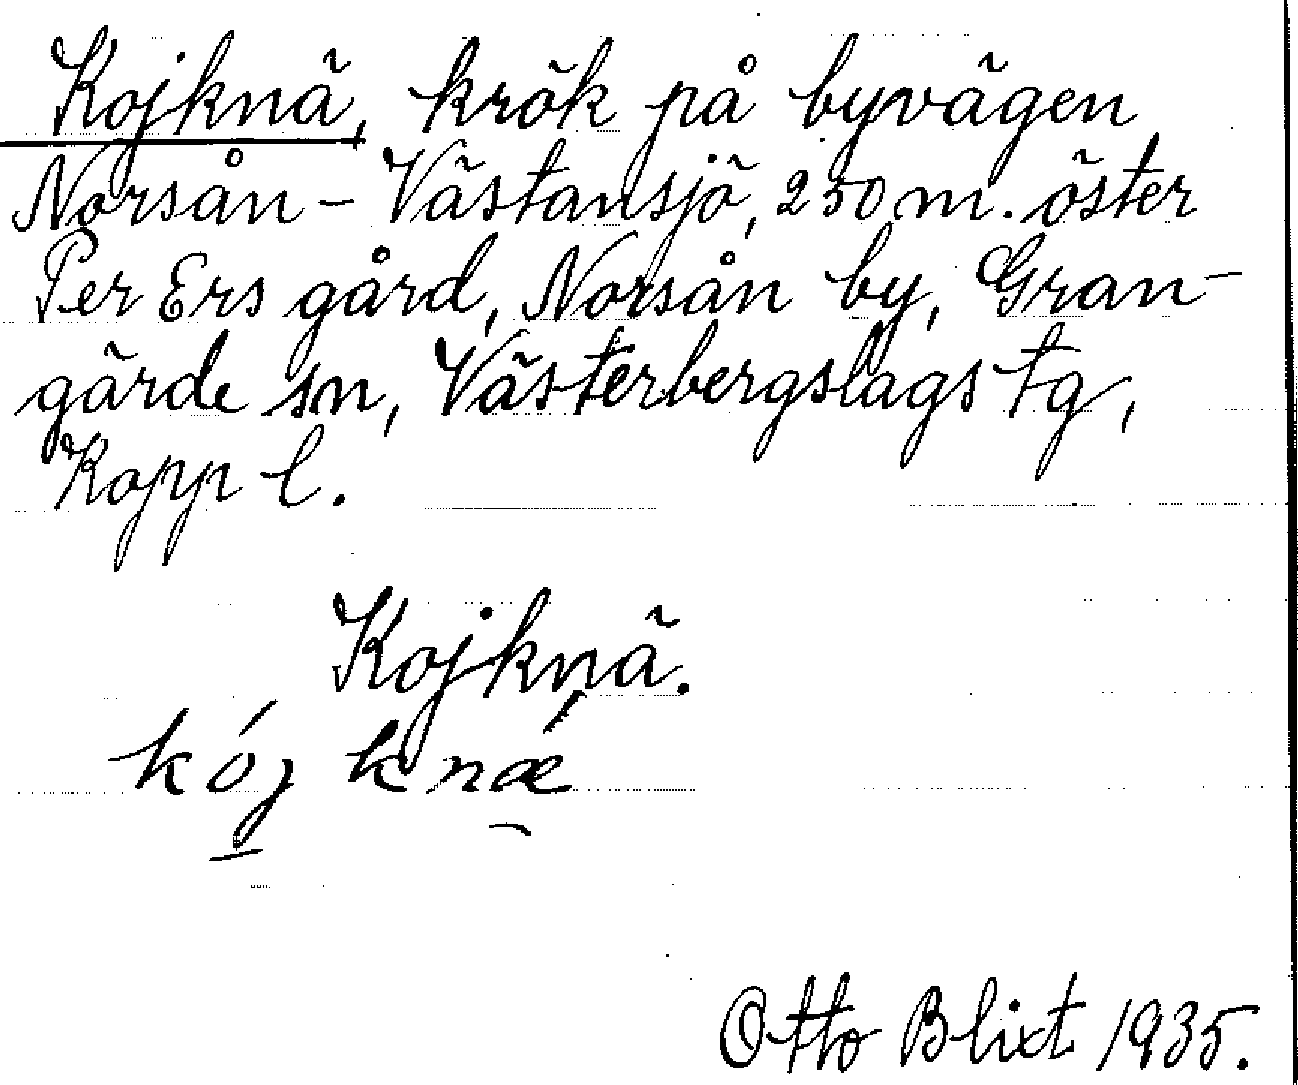 Kojknä, krök på byvägen
Norsån - Västansjö, 250 m. öster
Per Ers gård, Norsån by, Gran-
gärde sn, Västerbergslags tg,
Kopp l.
Kojknä.
kój knǽ
Otto Blixt 1935.